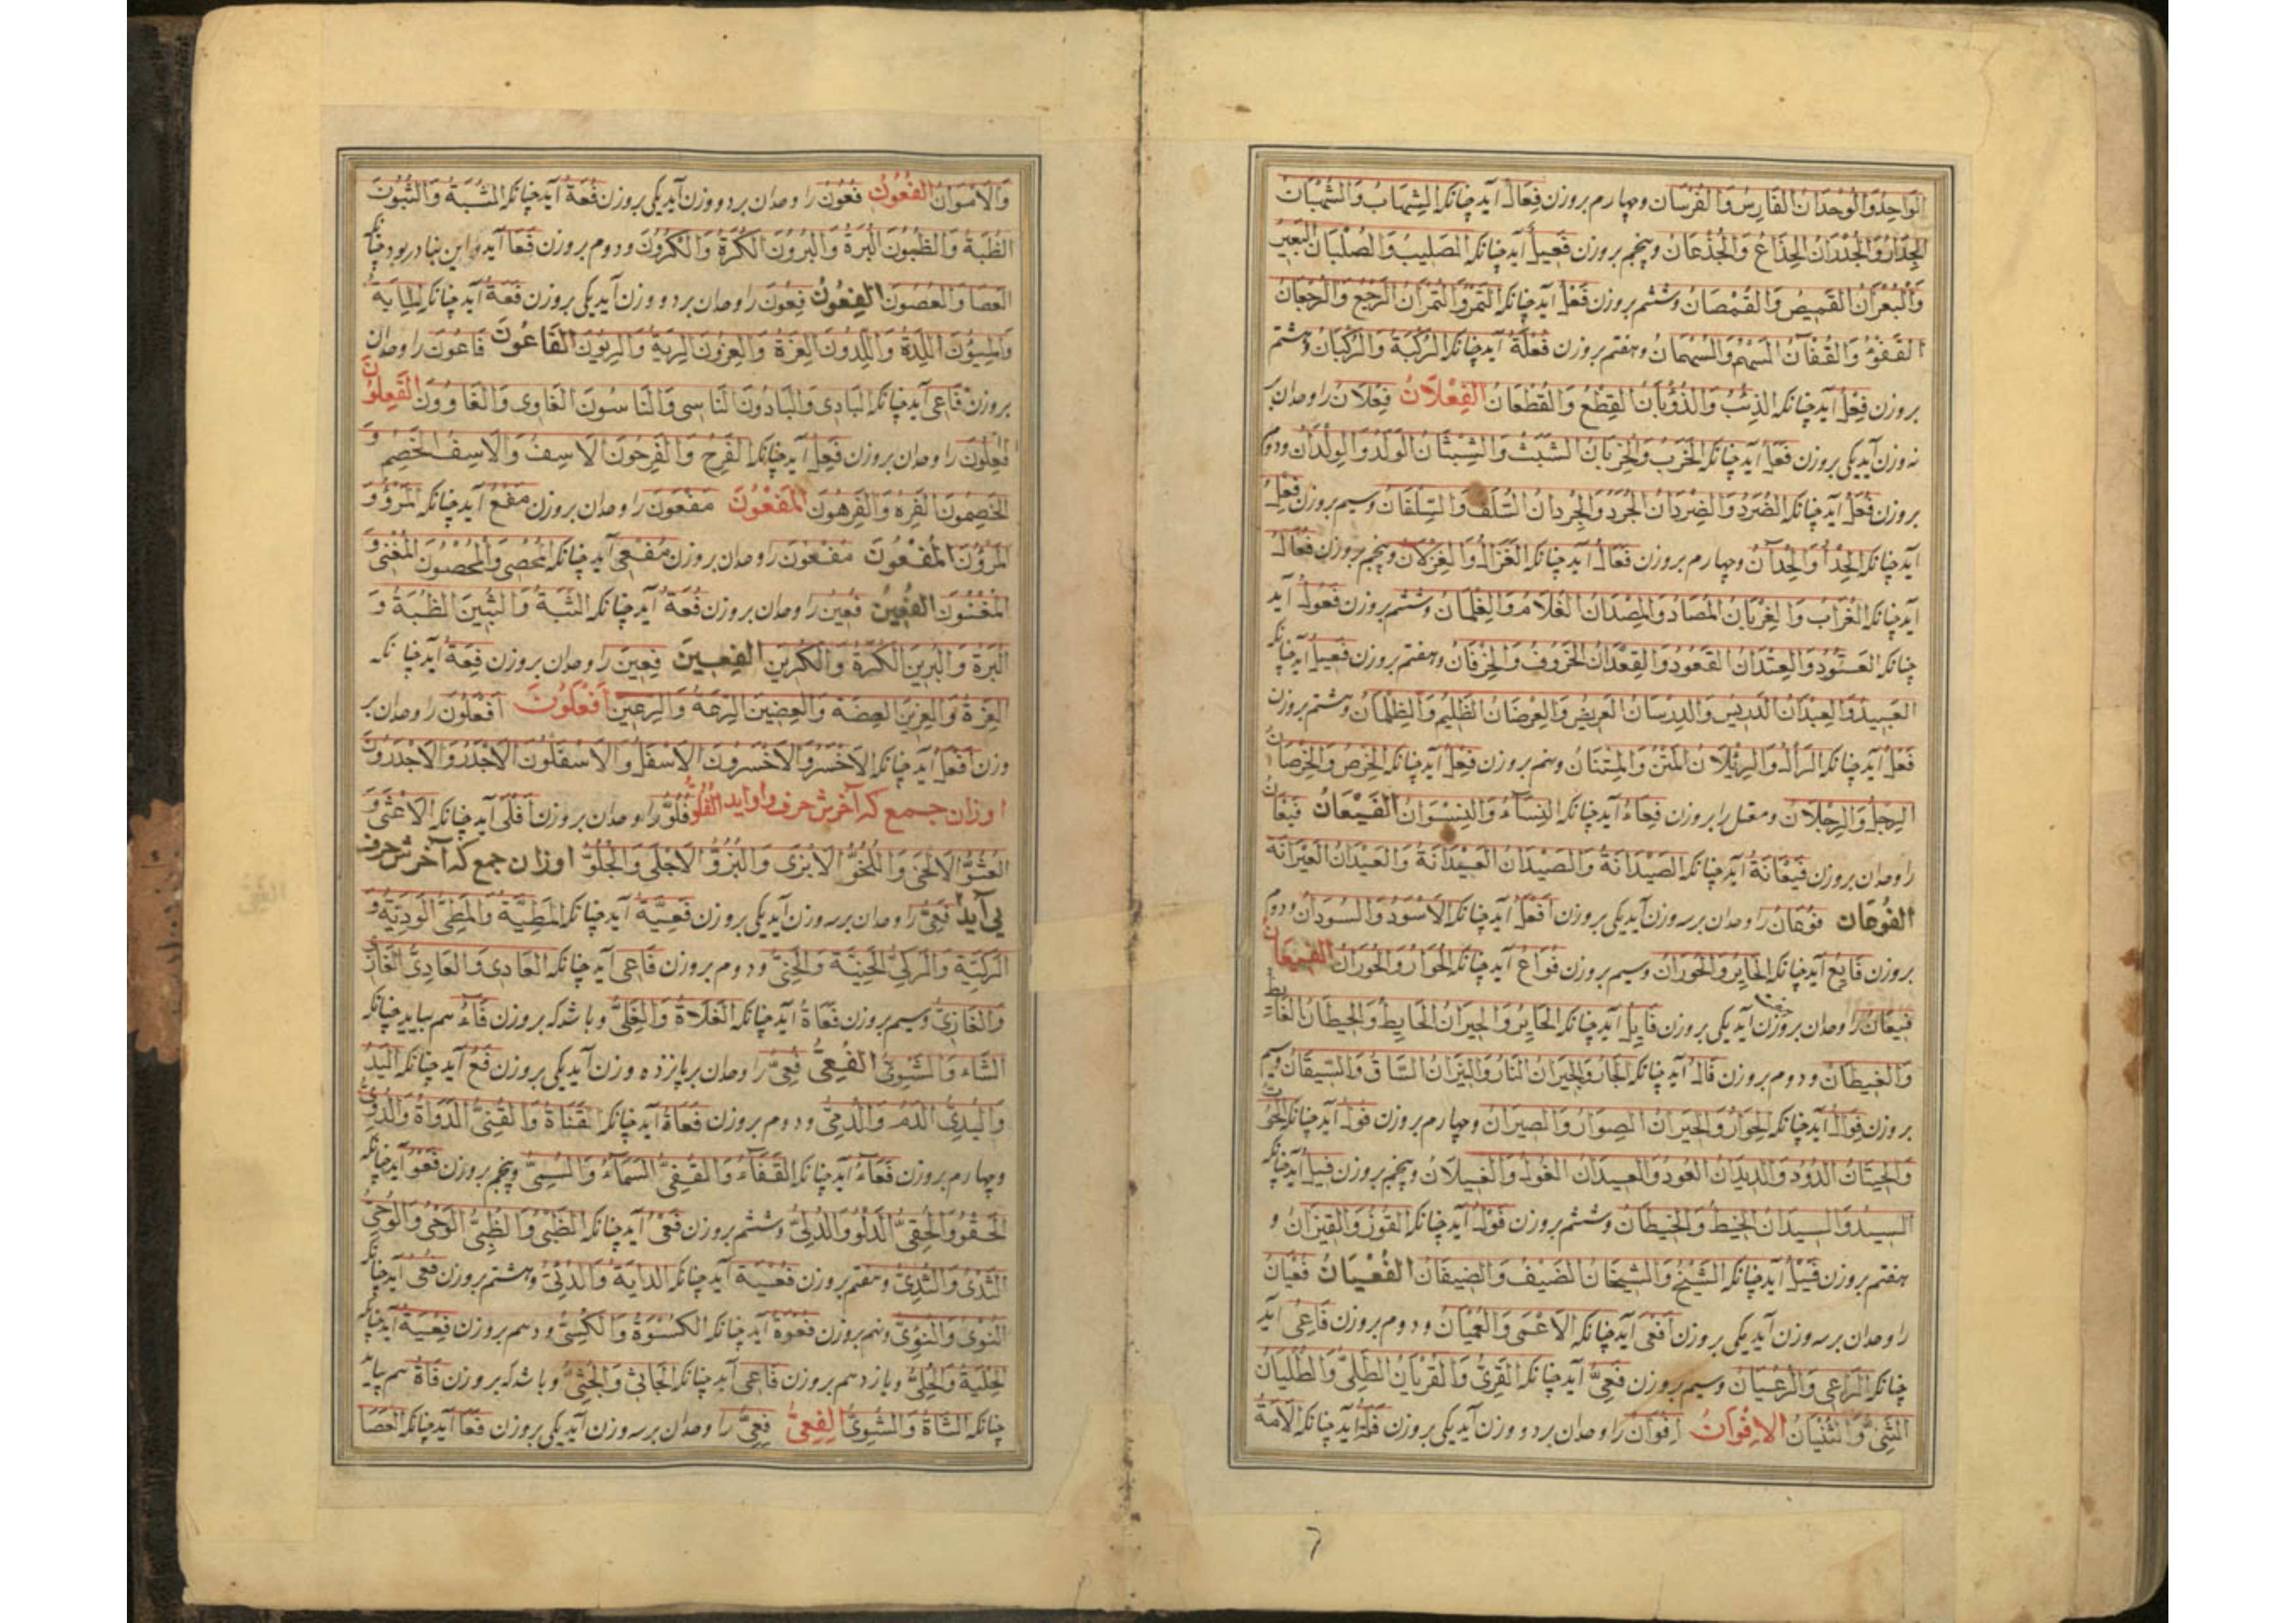 الواحد والوحدان الفارس والفرسان وچهارم بروزن فعال آید چنانکه الشهاب والشهبان
الجدار والجدران الجذاع والجذعان وپنجم بروزن فعیل آید چنانکه الصلیب والصلبان البعیر
والبعران القمیص والقمصان وششم بروزن فعل آید چنانکه التمر والتمران الرجع والرجعان
القفو والقفآن السهم والسهمان وهفتم بروزن فعلة آید چنانکه الرکبة والرکبان وهشتم
بروزن فعل آید چنانکه الذئب والذؤبان القطع والقطعان الفعلان فعلان را وحدان بر
نه وزن آید یکی بروزن فعل آید چنانکه الخرب والخربان الشبث والشبثان الولد والولدان ودوم
بروزن فعل آید چنانکه الصرد والصردان الجرد والجردان السلف والسلفان وسیم بروزن فعل
آید چنانکه الحدأ والحدآن وچهارم بروزن فعال آید چنانکه الغزال والغزلان وپنجم بروزن فعال
آید چنانکه الغراب والغربان المصاد والمصدان الغلام والغلمان وششم بروزن فعول آید
چنانکه العتود والعتدان القعود والقعدان الخروف والخرفان وهفتم بروزن فعیل آید چنانکه
العبید والعبدان الدریس والدرسان العریض والعرضان الظلیم والظلمان وهشتم بروزن
فعل آید چنانکه الرأل والرئلان المتن والمتنان ونهم بروزن فعل آید چنانکه الخرص والخرصان
الرجل والرجلان ومعتل را بروزن فعاء آید چنانکه النساء والنسوان الفیعان فیعان
را وحدان بروزن فیعانة آید چنانکه الصیدانة والصیدان العیدانة والعیدان العیرانة
الفوعان فوعان را وحدان برسه وزن آید یکی بروزن افعل آید چنانکه الاسود والسودان ودوم
بروزن فایع آید چنانکه الحایر والحوران وسیم بروزن فواع آید چنانکه الحوار والحوران الفیعان
فیعان را وحدان بروزن آید یکی بروزن فایل آید چنانکه الحایر والحیران الحایط والحیطان الغایط
والغیطان ودوم بروزن فال آید چنانکه الجار والجیران النار والنیران الساق والسیقان وسیم
بروزن فوال آید چنانکه الحوار والحیران الصوار والصیران وچهارم بروزن فول آید چنانکه الحوت
والحیتان الدود والدیدان العود والعیدان الغول والغیلان وپنجم بروزن فیل آید چنانکه
السید والسیدان الخیط والخیطان وششم بروزن فول آید چنانکه القوز والقیزان و
هفتم بروزن فیل آید چنانکه الشیخ والشیخان الضیف والضیفان الفعیان فعیان
را وحدان برسه وزن آید یکی بروزن افعی آید چنانکه الاعمی والعمیان ودوم بروزن فاعی آید
چنانکه الراعی والرعیان وسیم بروزن فعی آید چنانکه القری والقریان الطلی والطلیان
الثنی والثنیان الافوان افوان را وحدان بردو وزن آید یکی بروزن فلة آید چنانکه الامة
والاموان الفعون فعون را وحدان بردو وزن آید یکی بروزن فعة آید چنانکه الثبة والثبون
الظبة والظبون البرة والبرون الکرة والکرون ودوم بروزن فعا آید واین بنا در بود چنانکه
العصا والعصون الفعون فعون را وحدان بردو وزن آید یکی بروزن فعة آید چنانکه المایة
والمیون اللدة واللدون العزة والعزون الریة والریون الفاعون فاعون را وحدان
بروزن فاعی آید چنانکه البادی والبادون الناسی والناسون الغاوی والغاوون الفعلون
فعلون را وحدان بروزن فعل آید چنانکه الفرح والفرحون الاسف والاسف الخصم و
الخصمون الفره والفرهون المفعون مفعون را وحدان بروزن مفع آید چنانکه المرؤ و
المرؤن المفعون مفعون را وحدان بروزن مفعی آید چنانکه المحصی والمحصون المغنی و
المغنون الفعین فعین را وحدان بروزن فعة آید چنانکه الثبة والثبین الظبة و
البرة والبرین الکرة والکرین الفعین فعین را وحدان بروزن فعة آید چنانکه
العزة والعزین العضة والعضین الرعة والرعین افعلون افعلون را وحدان بر
وزن افعل آید چنانکه الاخسر والاخسرون الاسفل والاسفلون الاجدر والاجدرون
اوزان جمع که آخرش حرف واو آید الفلو فلو را وحدان بروزن افلی آید چنانکه الاعشی و
العشو الالخی واللخو الابزی والبزو الاجلی والجلو اوزان جمع که آخرش حرف
یی آید فعی را وحدان برسه وزن آید یکی بروزن فعیة آید چنانکه المطیة والمطی الودیة و
الرکیة والرکی الحنیة والحنی ودوم بروزن فاعی آید چنانکه العادی والعادی الغازی
والغازی وسیم بروزن فعاة آید چنانکه الغلاة والغلی وباشد که بروزن فاء هم بیاید چنانکه
الشاء والشوی الفعی فعی را وحدان بریازده وزن آید یکی بروزن فع آید چنانکه الید
والیدی الدم والدمی ودوم بروزن فعاة آید چنانکه القناة والقنی الدواة والدوی
وچهارم بروزن فعاء آید چنانکه القفاء والقفی السماء والسمی وپنجم بروزن فعو آید چنانکه
الحقو والحقی الدلو والدلی وششم بروزن فعی آید چنانکه الظبی والظبی الوحی والوحی
الثدی والثدی وهفتم بروزن فعیة آید چنانکه الدایة والدئی وهشتم بروزن فعی آید چنانکه
النوی والنوی ونهم بروزن فعوة آید چنانکه الکسوة والکسی ودهم بروزن فعیة آید چنانکه
الحلیة والحلی ویازدهم بروزن فاعی آید چنانکه الجاثی والجثی وباشد که بروزن فاة هم بیاید
چنانکه الشاة والشوی الفعی فعی را وحدان برسه وزن آید یکی بروزن فعا آید چنانکه العصا